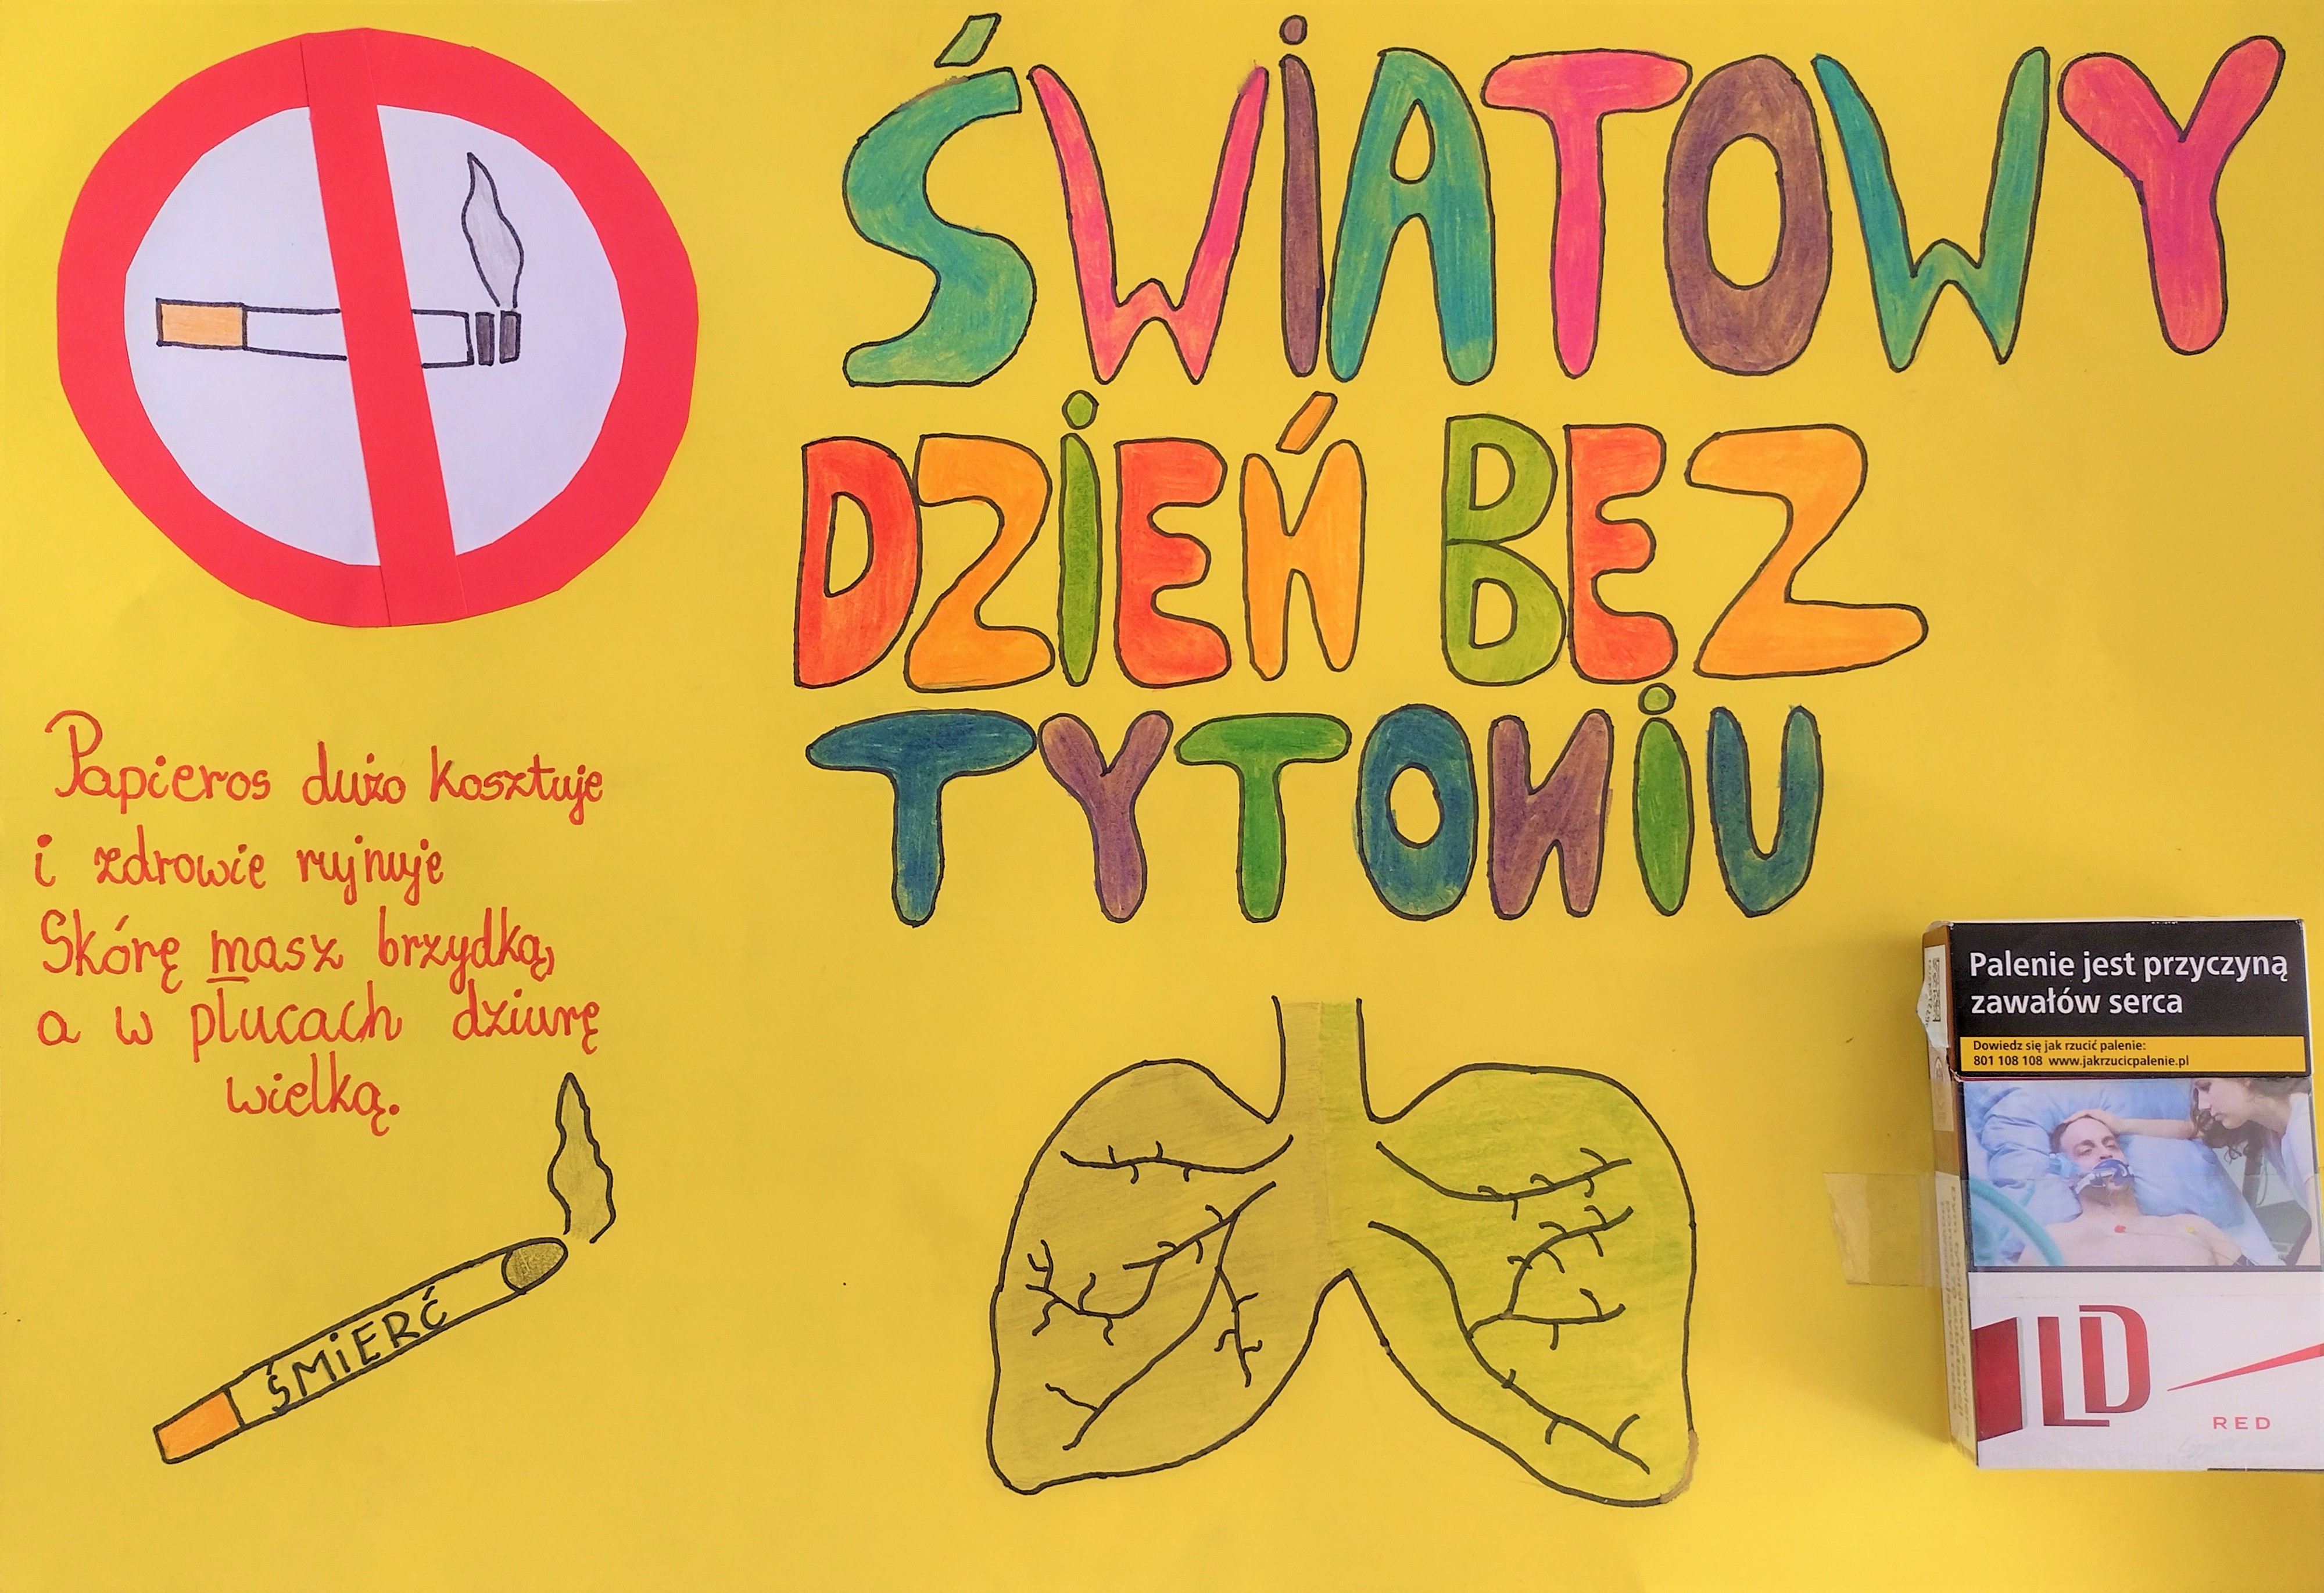 ŚWiATOWY
DZiEŃ BEZ
TYTONiU
Papieros dużo kosztuje
i zdrowie rujnuje
Skórę masz brzydką,
a w płucach dziurę
wielką.
ŚMiERĆ
Palenie jest przyczyną
zawałów serca
Dowiedz się jak rzucić palenie:
801 108 108 www.jakrzucicpalenie.pl
LD
RED